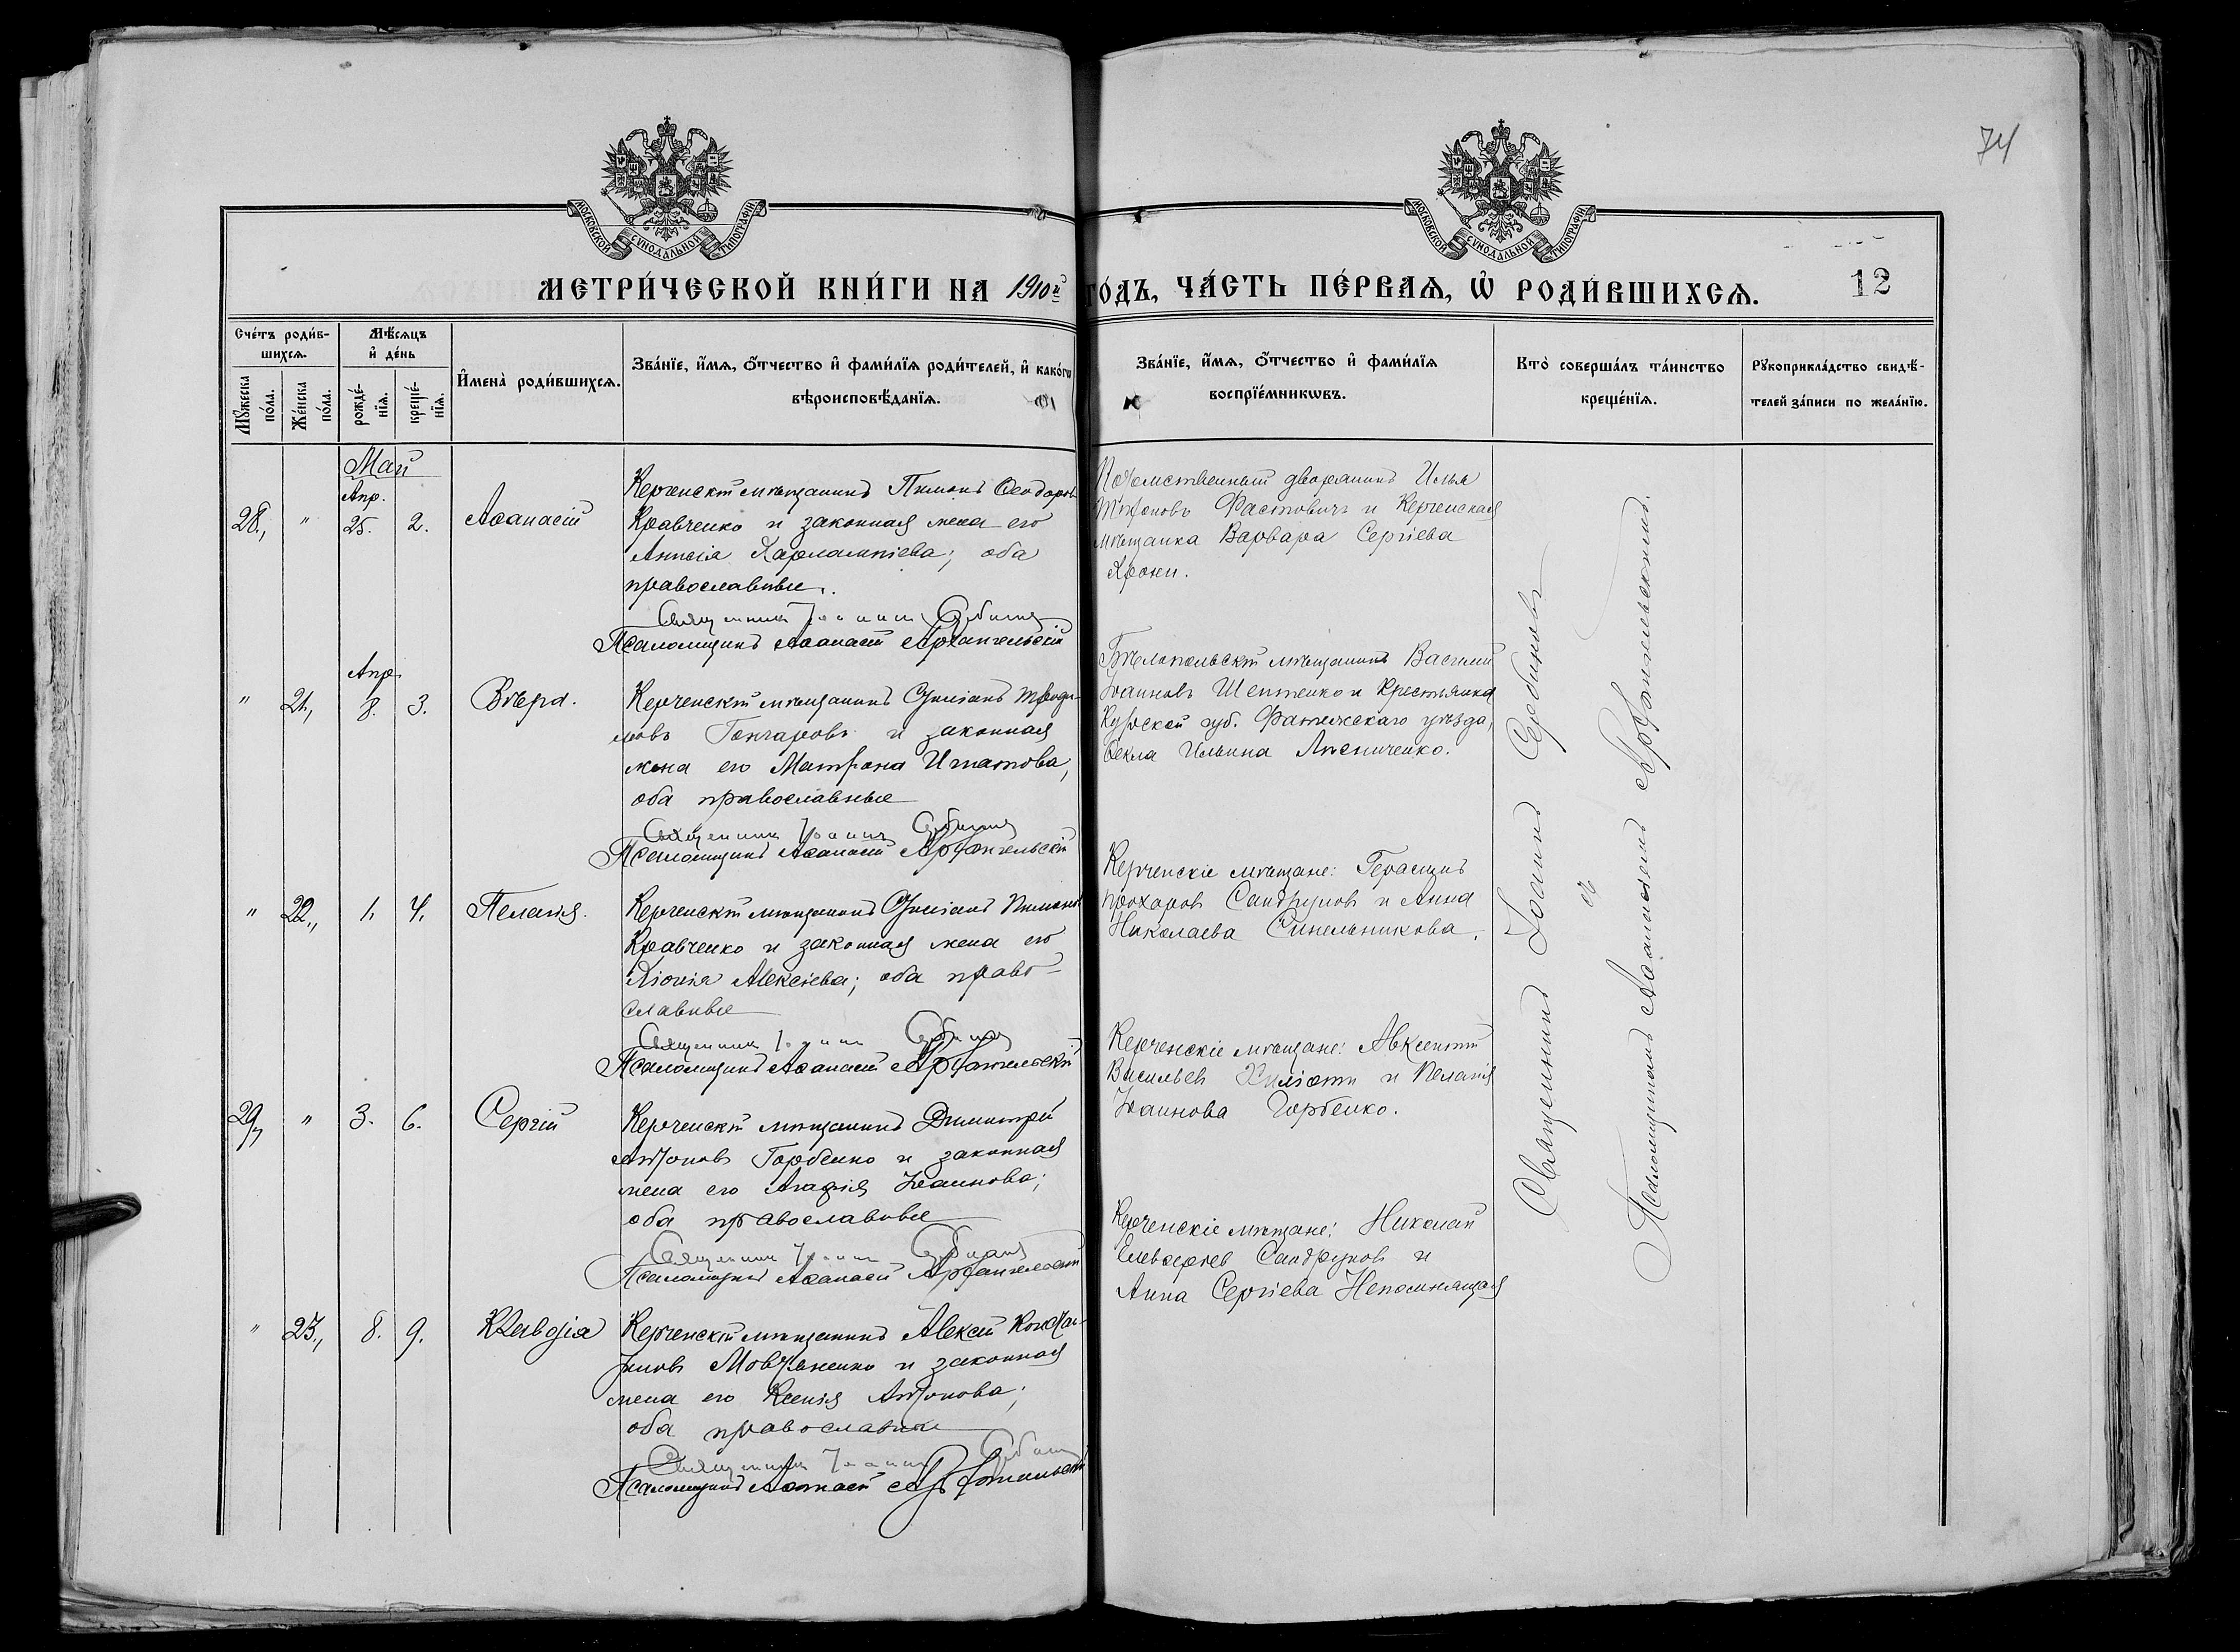 74
МОСКОВСКОЙ СѴНОДАЛЬНОЙ ТИПОГРАФІИ
МОСКОВСКОЙ СѴНОДАЛЬНОЙ ТИПОГРАФІИ
МЕТРИ́ЧЕСКОЙ КНИ́ГИ НА 1910й ГО́ДЪ, ЧА́СТЬ ПЕ́РВАѦ, Ѡ҆ РОДИ́ВШИХСѦ.
12
Сче́тъ роди́в-
шихсѧ.
Мꙋ́жеска по́ла.
Же́нска по́ла.
Мѣ́сѧцъ
и҆ де́нь
рожде́-
нїѧ.
креще́-
нїѧ.
И҆мена̀ роди́вшихсѧ.
Зва́нїе, и҆́мѧ, ѻ҆́тчество и҆ фами́лїѧ роди́телей, и҆ како́гѡ
вѣроисповѣ́данїѧ.
Зва́нїе, и҆́мѧ, ѻ҆́тчество и҆ фами́лїѧ
воспрїе́мникѡвъ.
Кто̀ соверша́лъ та́инство
креще́нїѧ.
Рꙋкоприкла́дство свидѣ́-
телей за́писи по жела́нїю.
Май
Апр.
28., " 25. 2. Аѳанасій
Керченскій мѣщанинъ Пименъ Ѳеодоровъ
Кравченко и законная жена его
Анисія Харлампіева; оба
православные.
Священникъ Іоаннъ Сербиновъ
Псаломщикъ Аѳанасій Архангельскій
Потомственный дворянинъ Илья
Тихоновъ Фастовичъ и Керченская
мѣщанка Варвара Сергіева
Апр.
" 21., 8. 3. Вѣра.
Керченскій мѣщанинъ Іуліанъ
Гончаровъ и законная
жена его Матрона Игнатова,
оба православные
Священникъ Іоаннъ Сербиновъ
Псаломщикъ Аѳанасій Архангельскій
Бѣлопольскій мѣщанинъ Василій
Іоанновъ Шептенко и крестьянка
Курской губ. Фатежскаго уѣзда,
Ѳекла Ильина Лисниченко.
" 22., 1. 4. Пелагія.
Керченскій мѣщанинъ Іуліанъ Пименовъ
Кравченко и законная жена его
Алексіева; оба право-
славные
Священникъ Іоаннъ Сербиновъ
Псаломщикъ Аѳанасій Архангельскій
Керченскіе мѣщане: Герасимъ
Прохоровъ Сандрупов и Анна
Николаева Синельникова.
29., " 3. 6. Сергій
Керченскій мѣщанинъ Димитрій
Антоновъ Горбенко и законная
жена его Агафія Іоаннова;
оба православные
Священникъ Іоаннъ Сербиновъ
Псаломщикъ Аѳанасій Архангельскій
Керченскіе мѣщане: Авксентій
Васильев и Пелагія
Іоаннова Горбенко.
" 23., 8. 9. Клавдія
Керченскій мѣщанинъ Алексій
Мовчаненко и законная
жена его Ксенія Антонова;
оба православные
Священникъ Іоаннъ Сербиновъ
Псаломщикъ Аѳанасій Архангельскій
Керченскіе мѣщане: Николай
Елевферіев Сандрупов и
Анна Сергіева Непомнящая
Священникъ Іоаннъ Сербиновъ
съ
Псаломщикомъ Аѳанасіемъ Архангельскимъ.